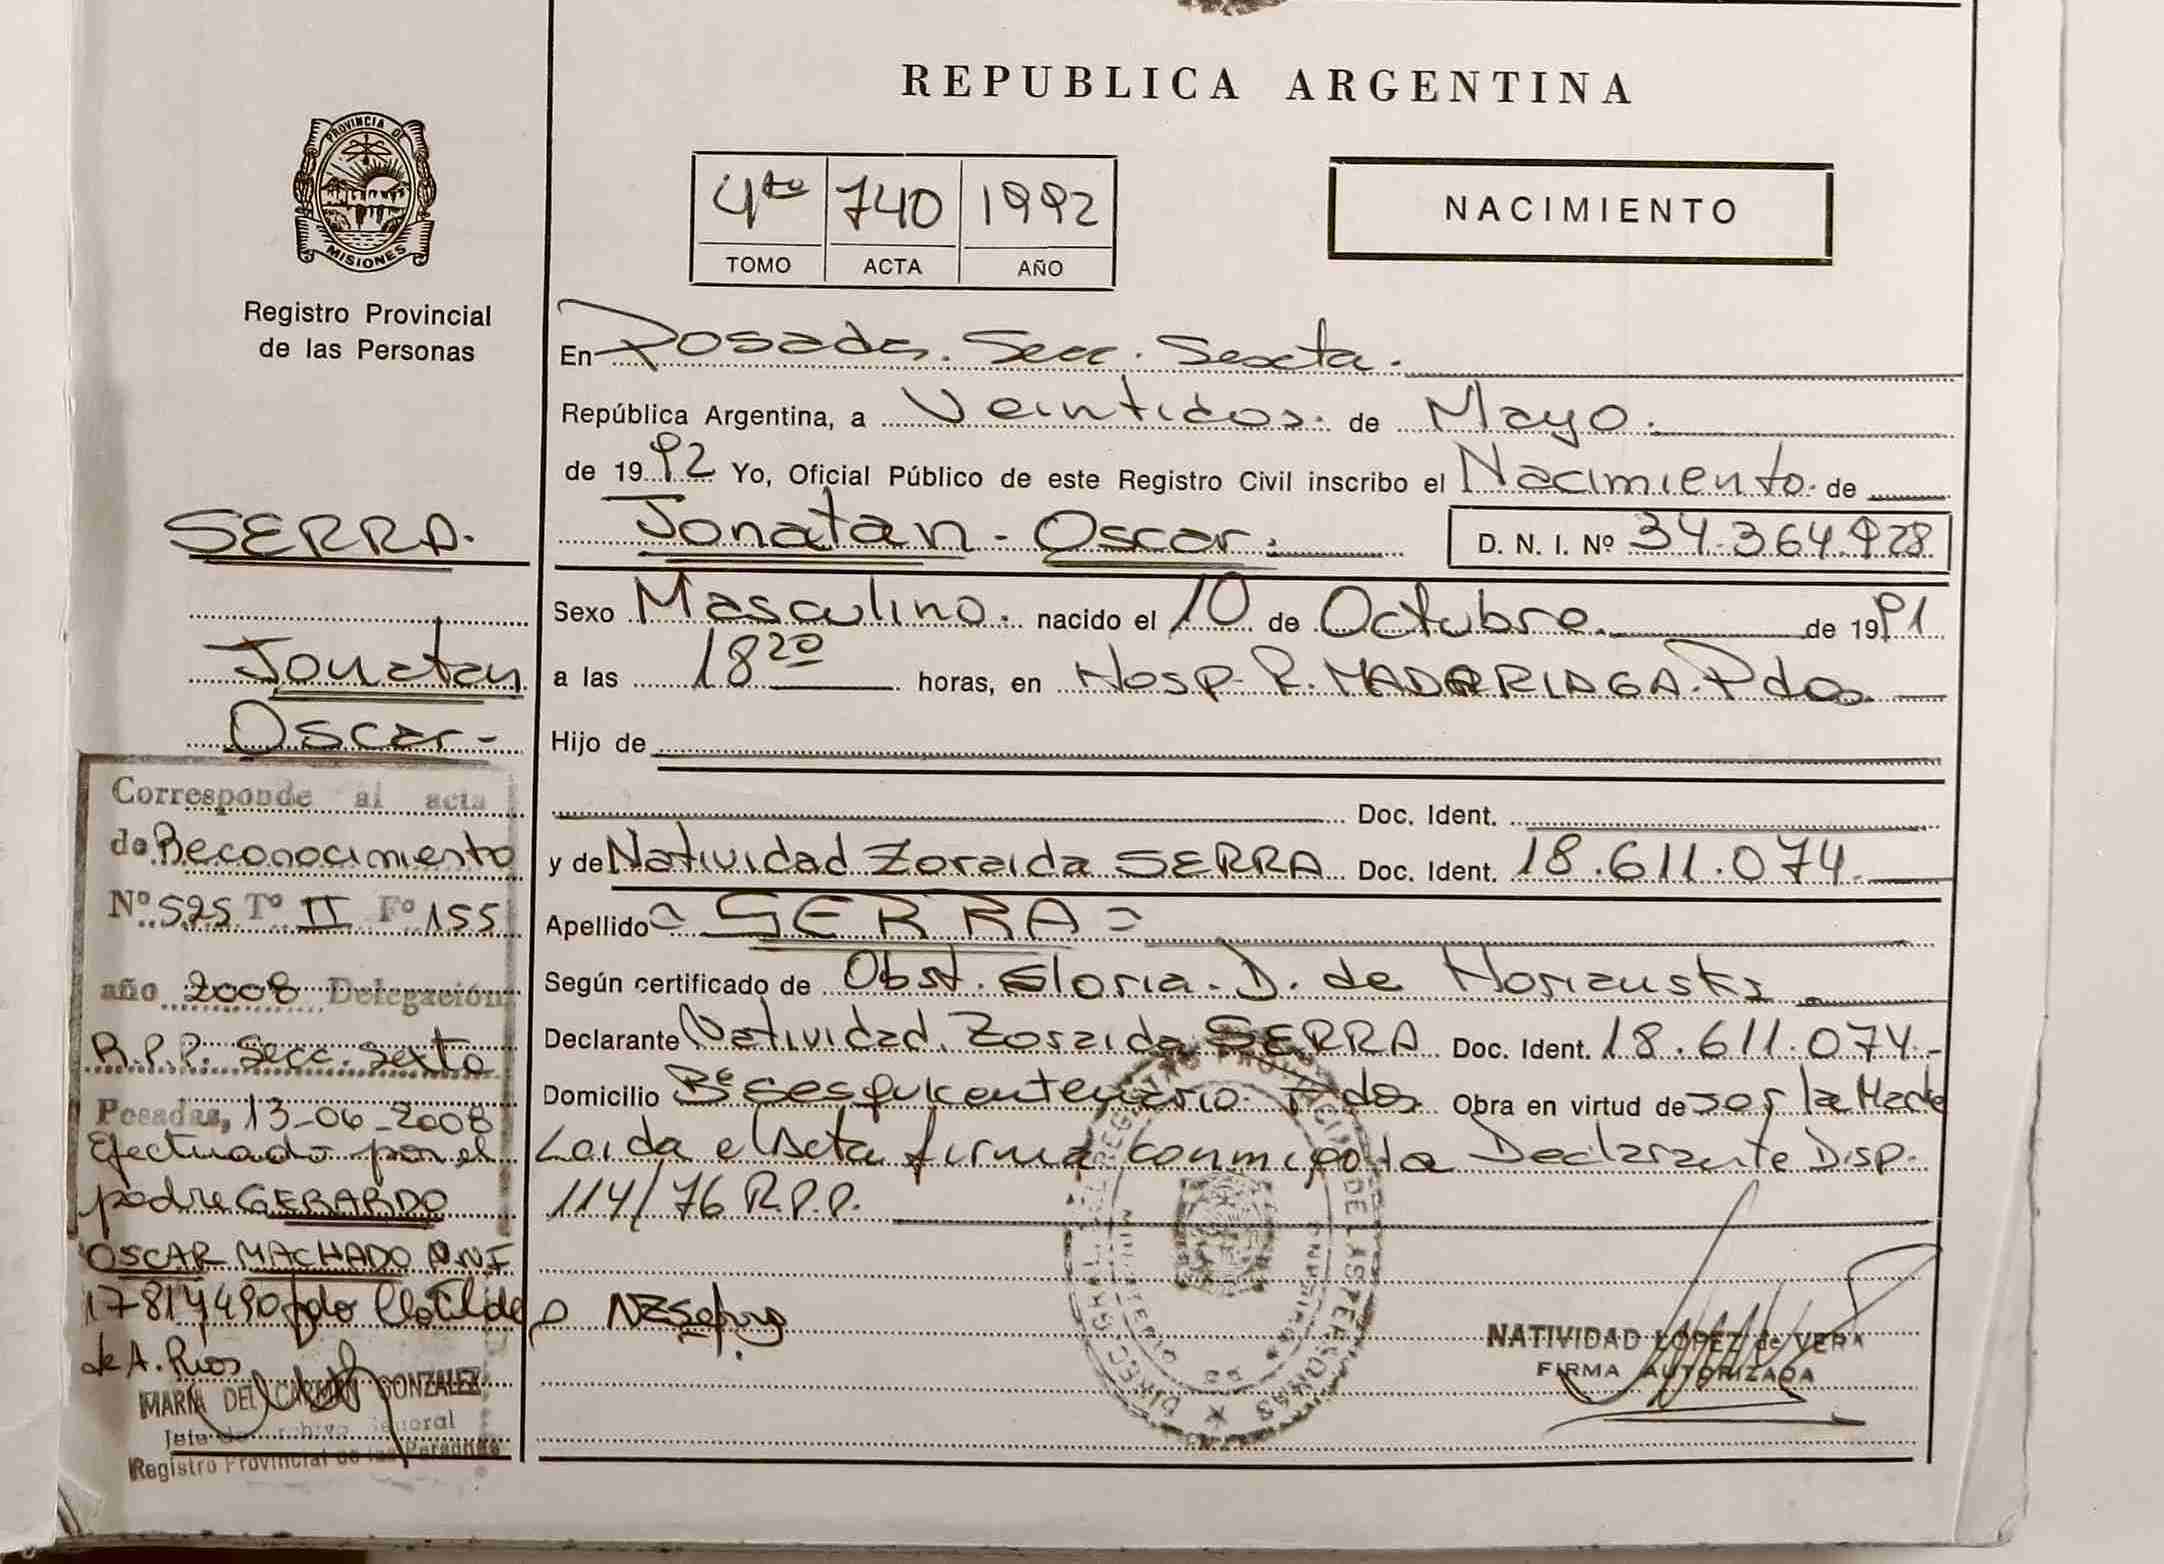 REPUBLICA ARGENTINA
PROVINCIA DE
MISIONES
Registro Provincial
de las Personas
4to 740 1992
TOMO ACTA AÑO
NACIMIENTO
En Posadas. Secc. Sexta.
República Argentina, a Veintidos. de Mayo.
de 1992 Yo, Oficial Público de este Registro Civil inscribo el Nacimiento. de
Jonatan - Oscar. D. N. I. Nº 34.364.928
Sexo Masculino. nacido el 10 de Octubre de 1991
a las 18 20 horas, en Hosp. R. MADARIAGA. Pdas
Hijo de
Doc. Ident.
y de Natividad Zoraida SERRA Doc. Ident. 18.611.074.
Apellido = SERRA =
Según certificado de Obst. Gloria. D. de
Declarante Natividad. Zoraida SERRA Doc. Ident. 18.611.074.-
Domicilio Bº Sesquicentenario. Pdas Obra en virtud de ser la Madre
Leida el Acta firma conmigo la Declarante Disp.
114/76 R.P.P.
NATIVIDAD LOPEZ de VERA
FIRMA AUTORIZADA
SERRA.
Jonatan
Oscar-
Corresponde al acta
de Reconocimiento
Nº 525 Tº II Fº 155
año 2008 Delegación
R.P.P. Secc. Sexta
Posadas, 13-06-2008
Efectuado por el
padre GERARDO
OSCAR MACHADO DNI
17814490 fdo Clotilde
de A. Rios
MARIA DEL CARMEN GONZALEZ
Jefe de Archivo General
Registro Provincial de las Personas